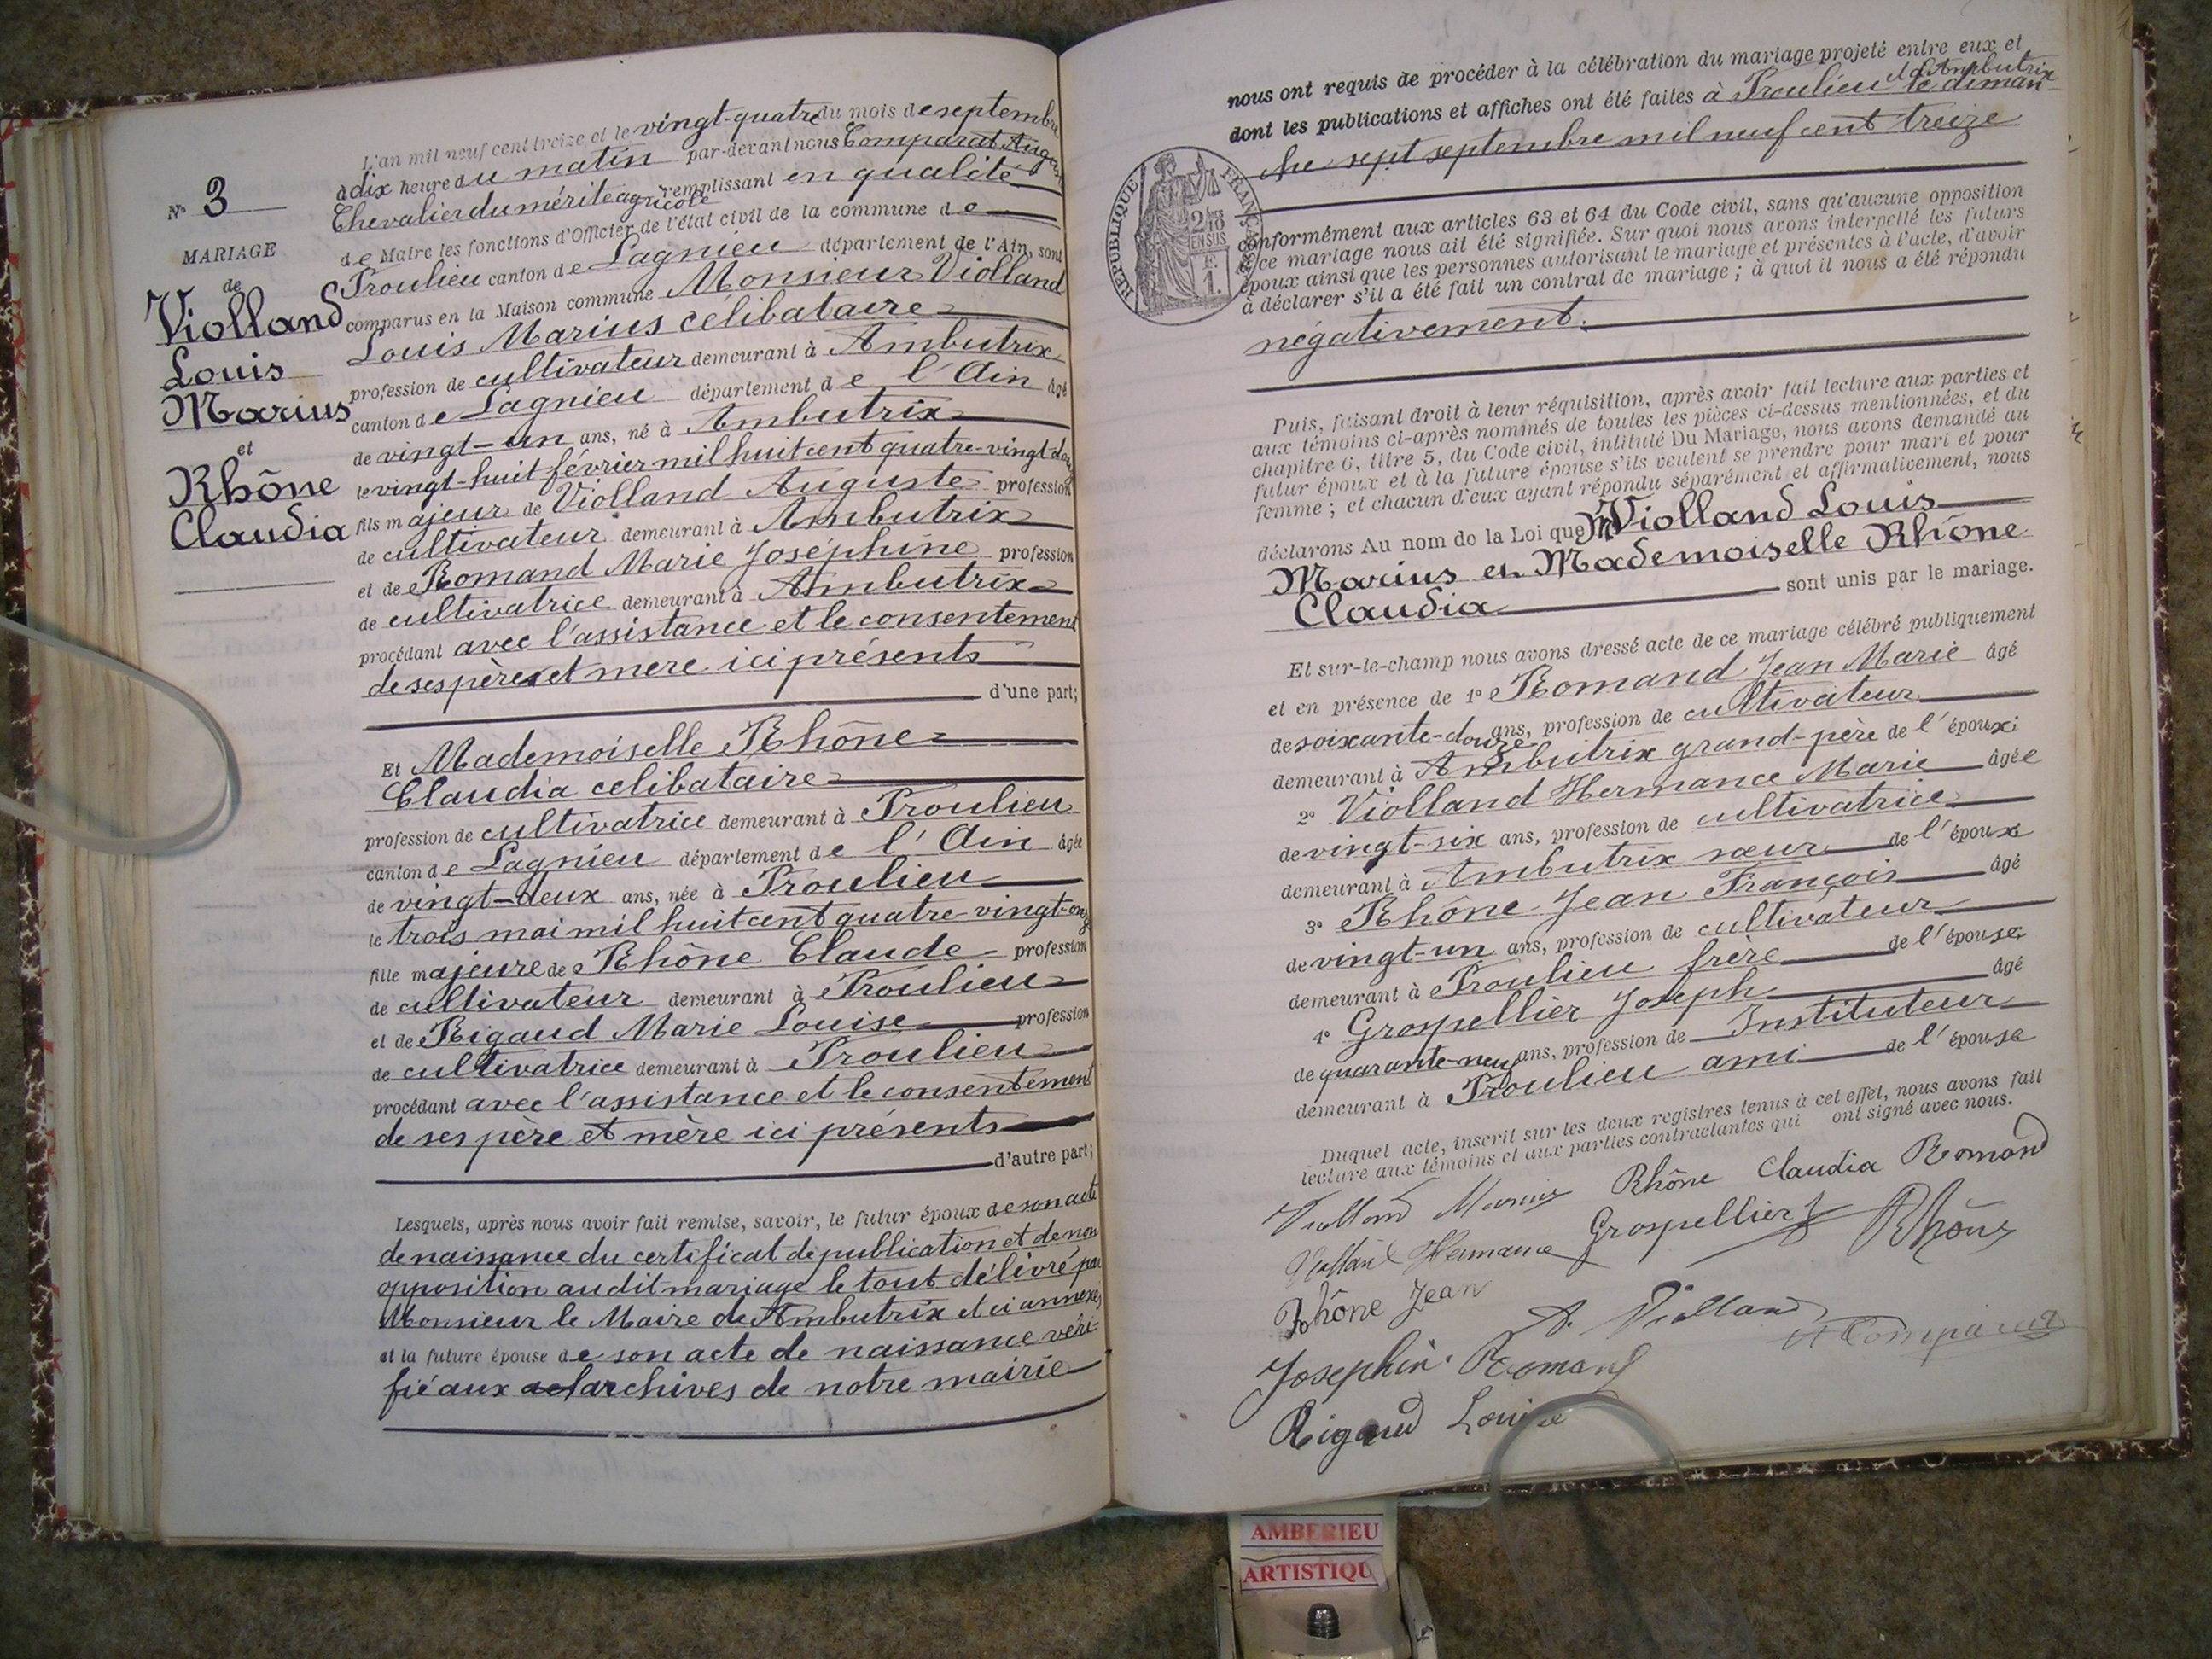 N° 3
MARIAGE
de
Violland
Louis
Marius
et
Rhône
Claudia
L'an mil neuf cent treize et le vingt-quatre du mois de septembre
à dix heure du matin par-devant nous Comparat Auguste
Chevalier du mérite agricole remplissant en qualité
de Maire les fonctions d'Officier de l'état civil de la commune de
Proulieu canton de Lagnieu département de l'Ain, sont
comparus en la Maison commune Monsieur Violland
Louis Marius célibataire
profession de cultivateur demeurant à Ambutrix
canton de Lagnieu département de l'Ain âgé
de vingt-un ans, né à Ambutrix
le vingt-huit février mil huit cent quatre-vingt-douze
fils majeur de Violland Auguste profession
de cultivateur demeurant à Ambutrix
et de Romand Marie Joséphine profession
de cultivatrice demeurant à Ambutrix
procédant avec l'assistance et le consentement
de ses père et mere ici présents
d'une part;
Et Mademoiselle Rhône
Claudia celibataire
profession de cultivatrice demeurant à Proulieu
canton de Lagnieu département de l'Ain âgée
de vingt-deux ans, née à Proulieu
le trois mai mil huit cent quatre-vingt-onze
fille majeure de Rhône Claude profession
de cultivateur demeurant à Proulieu
et de Rigaud Marie Louise profession
de cultivatrice demeurant à Proulieu
procédant avec l'assistance et le consentement
de ses père et mère ici présents
d'autre part;
Lesquels, après nous avoir fait remise, savoir, le futur époux de son acte
de naissance du certificat de publication et de non
opposition audit mariage le tout délivré par
Monsieur le Maire de Ambutrix et ci annexés
et la future épouse de son acte de naissance véri-
fié aux archives de notre mairie
nous ont requis de procéder à la célébration du mariage projeté entre eux et
et d'Ambutrix
dont les publications et affiches ont été faites à Proulieu le diman-
che sept septembre mil neuf cent treize
RÉPUBLIQUE FRANÇAISE
2/10
EN SUS
F.
1.
conformément aux articles 63 et 64 du Code civil, sans qu'aucune opposition
à ce mariage nous ait été signifiée. Sur quoi nous avons interpellé les futurs
époux ainsi que les personnes autorisant le mariage et présentes à l'acte, d'avoir
à déclarer s'il a été fait un contrat de mariage ; à quoi il nous a été répondu
négativement.
Puis, faisant droit à leur réquisition, après avoir fait lecture aux parties et
aux témoins ci-après nommés de toutes les pièces ci-dessus mentionnées, et du
chapitre 6, titre 5, du Code civil, intitulé Du Mariage, nous avons demandé au
futur époux et à la future épouse s'ils veulent se prendre pour mari et pour
femme ; et chacun d'eux ayant répondu séparément et affirmativement, nous
déclarons Au nom de la Loi que Mr Violland Louis
Marius et Mademoiselle Rhône
Claudia sont unis par le mariage.
Et sur-le-champ nous avons dressé acte de ce mariage célébré publiquement
et en présence de 1° Romand Jean Marie âgé
de soixante-douze ans, profession de cultivateur
demeurant à Ambutrix grand-père de l'époux;
2° Violland Hermance Marie âgée
de vingt-six ans, profession de cultivatrice
demeurant à Ambutrix sœur de l'époux
3° Rhône Jean François âgé
de vingt-un ans, profession de cultivateur
demeurant à Proulieu frère de l'épouse
4° Grospellier Joseph âgé
de quarante-neuf ans, profession de Instituteur
demeurant à Proulieu ami de l'épouse
Duquel acte, inscrit sur les deux registres tenus à cet effet, nous avons fait
lecture aux témoins et aux parties contractantes qui ont signé avec nous.
Violland Marius Rhône Claudia Romand
Violland Hermance Grospellier J Rhône
Rhône Jean A. Violland A Comparat
Josephine Romand
Rigaud Louise
AMBERIEU
ARTISTIQU